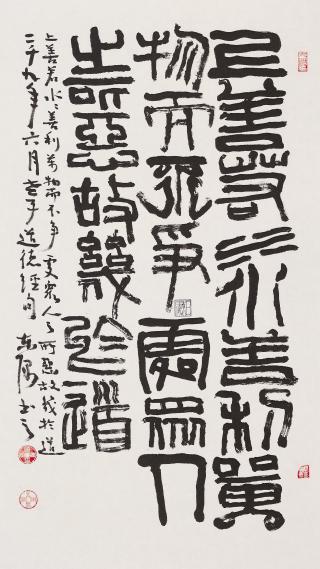 上善若水善利萬
物而不爭處眾人
之所惡故幾於道
上善若水水善利萬物而不爭處眾人之所惡故幾於道
二千九年六月老子道德經句